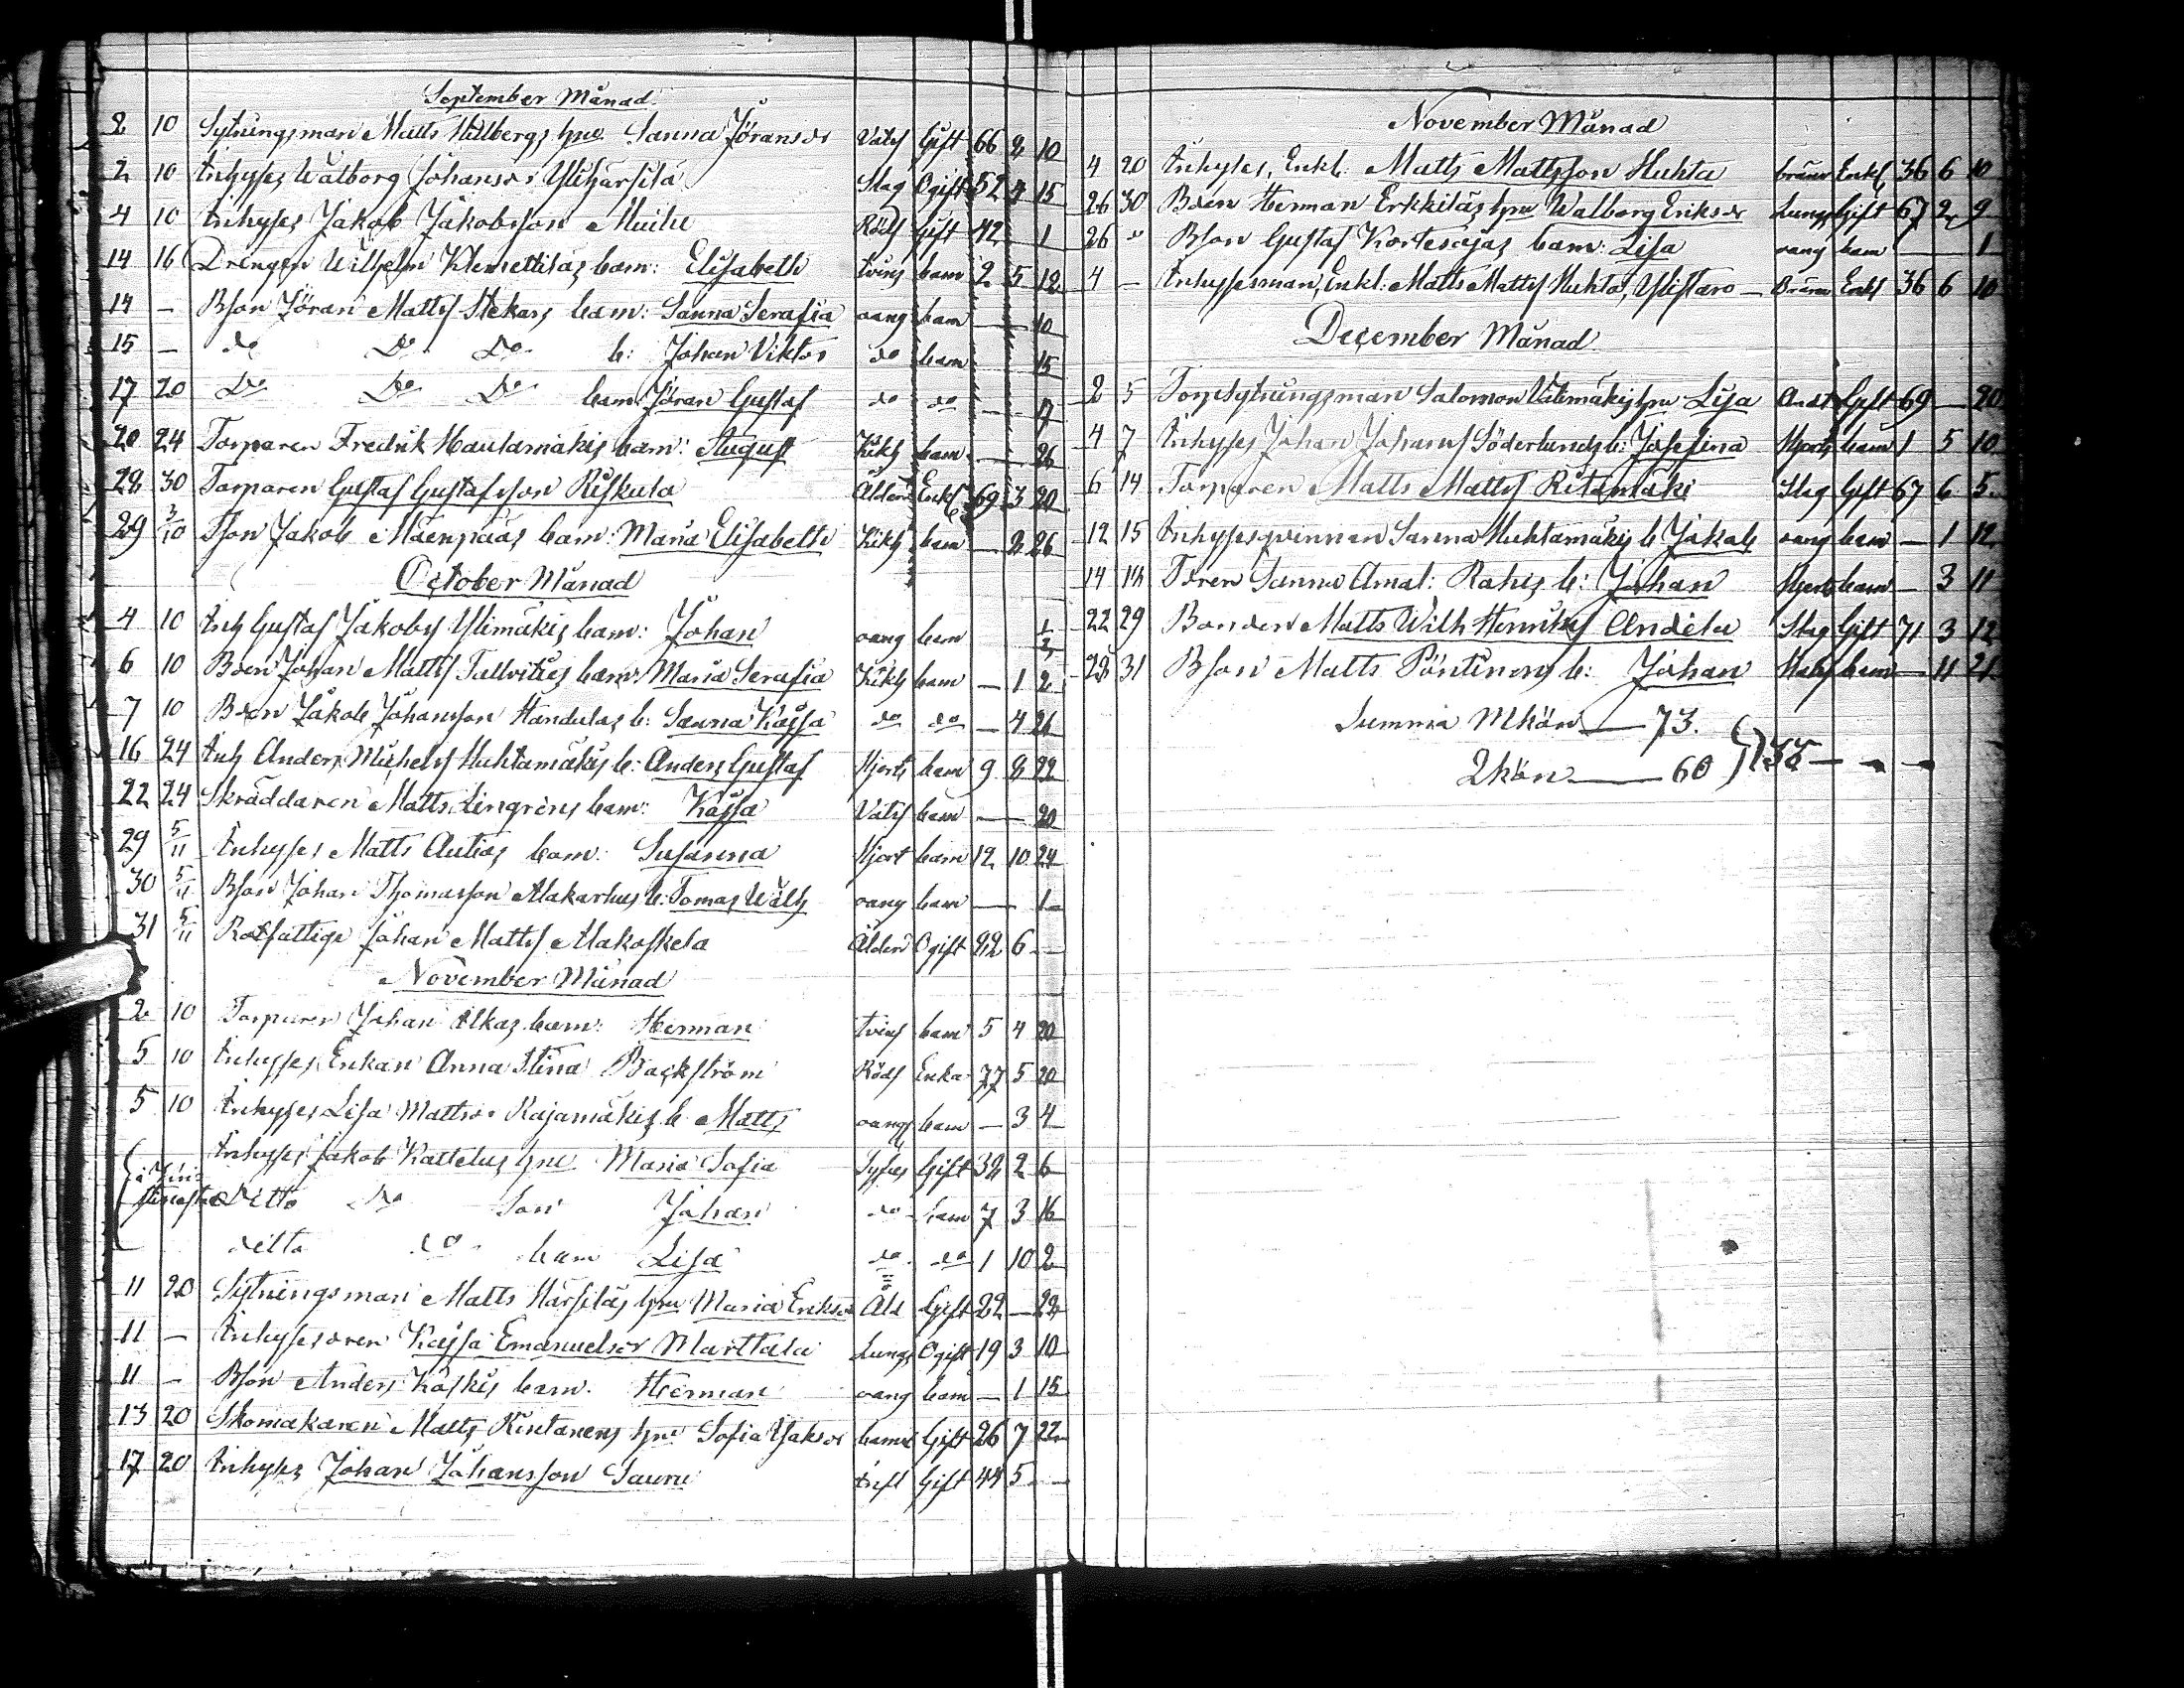 September Månad.
2 10 Sytningsman Matts Hallbergs hru. Sanna Jöransdr Vatts Gift 66 8 10
2 10 Inhyses Walborg Johansdr Ylihärsilä Slag Ogift 52 4 15
4 10 Inhyses Jakob Jakobsson Muilu Röds Gift 42 1
14 16 Drengen Wilhelm Klemettiläs barn: Elisabeth tvins barn 2 5 12
14 — Bson Jöran Matts Stekars barn: Sanna Serafia oang barn — 10
15 — do Do Do b: Johan Viktor do barn 15
17 20 Do Do Do barn Jöran Gustaf do do — 17
20 24 Torparen Fredrik Hautamäkis barn: August Kikh barn — 26
28 30 Torparen Gustaf Gustafsson Riskula Ålder Enkl 69 3 20
29 3/10 Tson Jakob Mäenpääs barn: Maria Elisabeth Kikh barn — 8 26
October Månad
4 10 Inh Gustaf Jakobs Ylimäkis barn: Johan oang barn 1/2
6 10 Bden Johan Matts Tallvities barn: Maria Serafia Kikh barn — 1 2
7 10 Bden Jakob Johansson Handulas b: Sanna Kajsa do do — 4 26
16 24 Inh Anders Michels Huhtamäkis b: Anders Gustaf Hjerts barn 9 8 22
22 24 Skräddaren Matts Lingrens barn: Kajsa Vatts barn — 20
29 5/11 Inhyses Matts Autios barn: Susanna Hjert barn 12 10 24
30 5/11 Bson Johan Thomasson Alakarhus b: Tomas Wilh oang barn — 1
31 5/11 Rotfattige Johan Matts Alakoskela Ålder Ogift 82 6 —
November Månad
2 10 Torparen Johan Ilkas barn: Herman tvins barn 5 4 20
5 10 Inhyses Enkan Anna Stina Backström Röds Enka 77 5 20
5 10 Inhyses Lisa Mattsdr Rajamäkis b Matts oangs barn — 3 4
Inhyses Jakob Kattelus hru. Maria Sofia Syfes Gift 38 2 6
Ditto Do Son Johan do barn 7 3 16
ditto do barn Lisa do do 1 10 2
11 20 Sytningsman Matts Härsiläs hru Maria Eriksdr Åld Gift 82 — 22
11 — Inhysesdren Kajsa Emanuelsdr Marttala Lungs Ogift 19 3 10
11 — Bson Anders Koskis barn. Herman oang barn — 1 15
13 20 Skomakaren Matts Rintanens hru Sofia Jaksdr barns Gift 26 7 22
17 20 Inhyses Johan Johansson Sauru Gift 44 5 —
November Månad
4 20 Inhyses, Enkl: Matts Mattsson Huhta bränv Enkl 36 6 10
26 30 Bden Herman Erkkiläs hru Walborg Eriksdr Lungs Gift 67 2 9
26 " Bson Gustaf Kortesojas barn: Lisa oang barn — 1
4 — Inhysesman, Enkl: Matts Matts Huhta, Ylistaro — Bränv Enkl 36 6 10
December Månad
2 5 Torpsytningsman Salomon Välimäkis hru Lisa Andt Gift 69 — 20
4 7 Inhyses Johan Johans Söderlunds b: Josefina Hjerts barn 1 5 10
6 14 Torparen Matts Matts Ritamäki Slag Gift 67 6 5
12 15 Inhysesqvinnan Sanna Huhtamäkis b Jakob oang barn — 1 12
14 14 Tdren Sanna Amal: Rahis b: Johan Hjerts barn 3 11
22 29 Bonden Matts Wilh Henriks Andela Slag Gift 71 3 12
28 31 Bson Matts Pöntinens b: Johan barn — 11 21
Summa Mkön — 73.
Qkön — 60 } 133 — — —